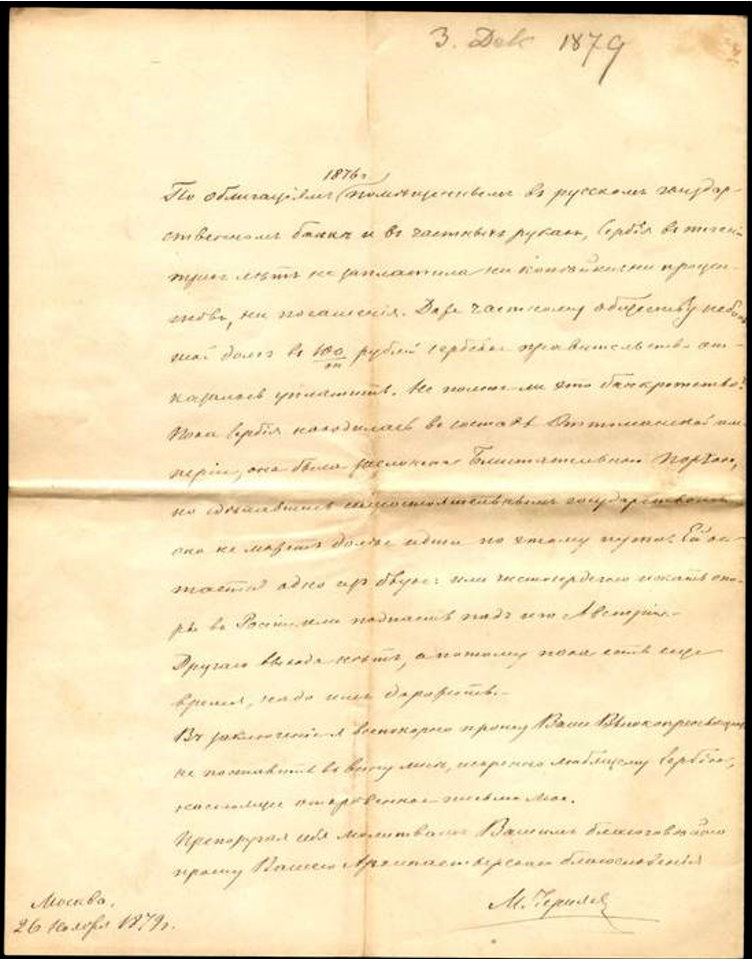 3. Dek 1879
1876 г
По облигаціямъ помѣщеннымъ въ русскомъ государ-
ственномъ банкѣ и въ частныхъ рукахъ, Сербія въ течені
трехъ лѣтъ не заплатила ни копѣйки ни процен-
товъ, ни погашенія. Даже частному обществу
долгъ въ 100/m рублей сербское правительство от-
казалось уплатить. Не полное ли это банкротство?
Пока Сербія находилась въ составѣ Оттоманской им-
періи, она была Блистательной Портою,
но сдѣлавшись самостоятельнымъ государствомъ
она не можетъ долѣе идти по этому пути: Ей ос-
тается одно изъ двухъ: или искать опо-
ры въ Россіи или подпасть подъ иго Австріи.
Другаго выхода нѣтъ, а потому пока есть еще
время, надо имъ дорожить.
Въ заключеніе я всепокорно прошу Ваше Высокопреосвящен
не поставить въ вину мнѣ, искренно любящему Сербію,
настоящее откровенное письмо мое.
Препоручая себя молитвамъ Вашимъ благоговѣйно
прошу Вашего Архипастырскаго благословенія
М. Черняев
Москва.
26 Ноября 1879 г.